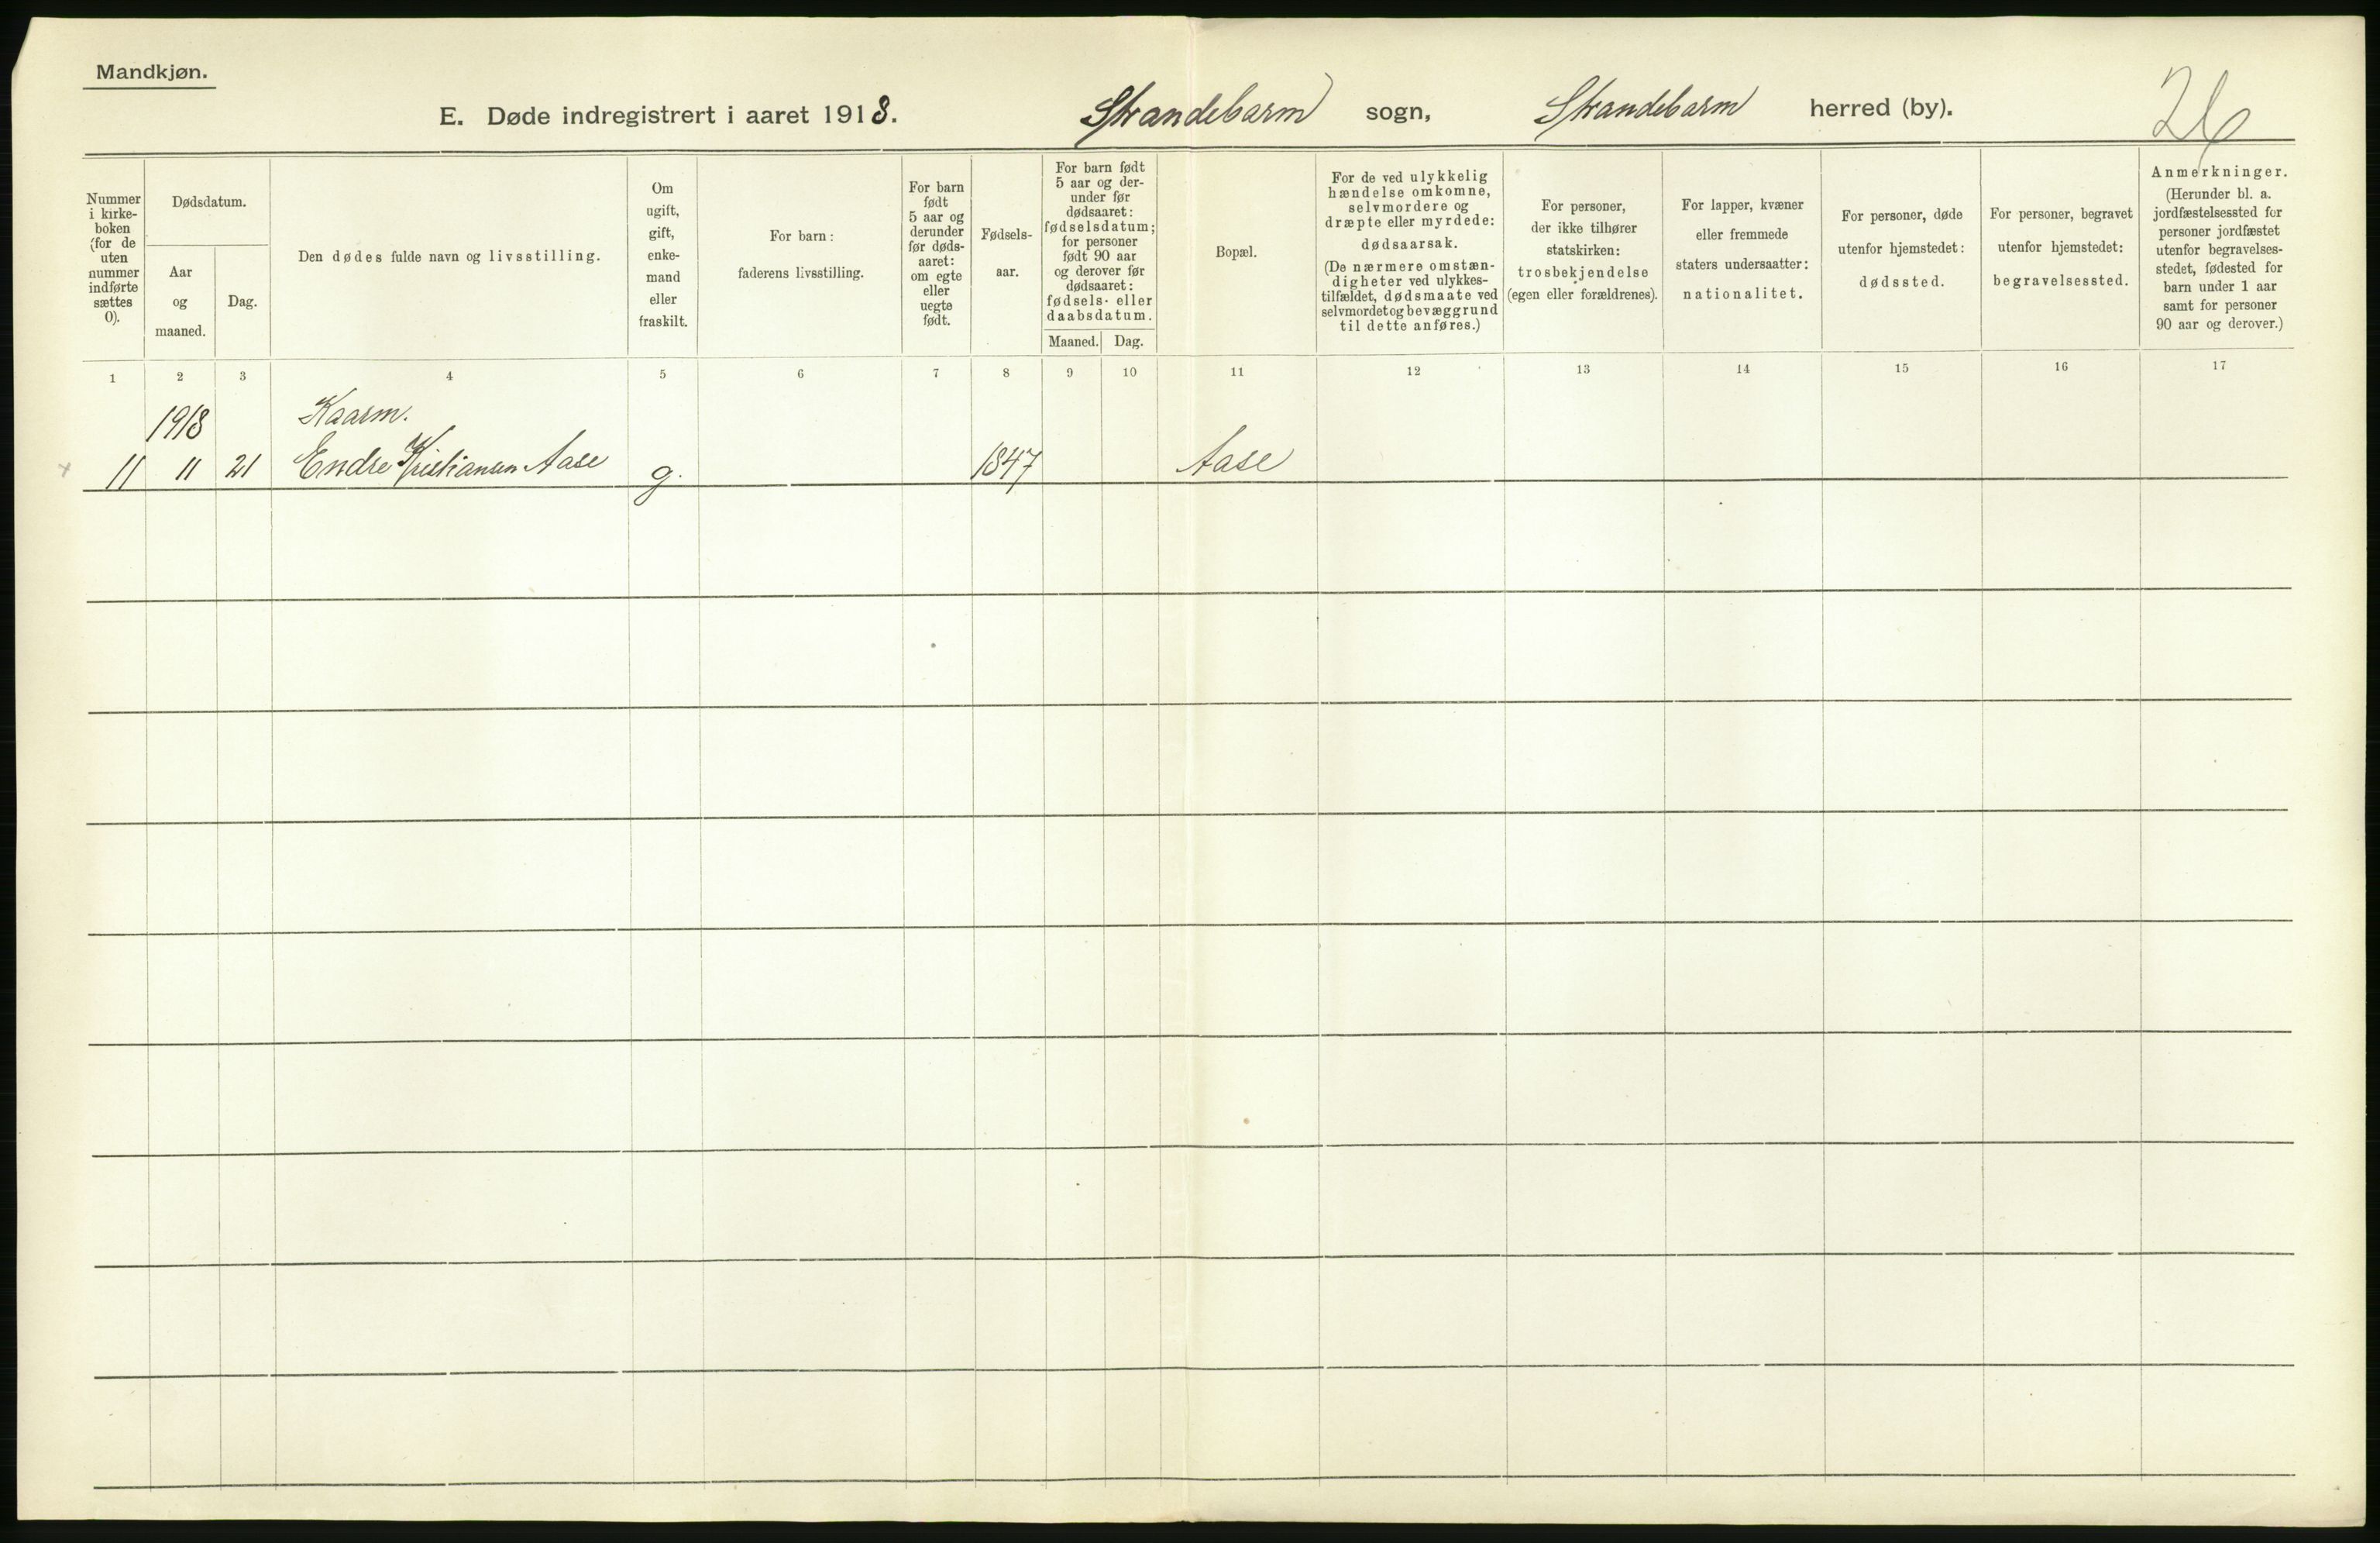 Mandkjøn.
E. Døde indregistrert i aaret 1918. Strandebarm sogn, Strandebarm herred (by). 26
Nummer
i kirke-
boken
(for de
uten
nummer
indførte
sættes
0).
Dødsdatum.
Aar
og
maaned.
Dag.
Den dødes fulde navn og livsstilling.
Om
ugift,
gift,
enke-
mand
eller
fraskilt.
For barn:
faderens livsstilling.
For barn
født
5 aar og
derunder
før døds-
aaret:
om egte
eller
uegte
født.
Fødsels-
aar.
For barn født
5 aar og der-
under før
dødsaaret:
fødselsdatum;
for personer
født 90 aar
og derover før
dødsaaret:
fødsels- eller
daabsdatum.
Maaned. Dag.
Bopæl.
For de ved ulykkelig
hændelse omkomne,
selvmordere og
dræpte eller myrdede:
dødsaarsak.
(De nærmere omstæn-
digheter ved ulykkes-
tilfældet, dødsmaate ved
selvmordet og bevæggrund
til dette anføres.)
For personer,
der ikke tilhører
statskirken:
trosbekjendelse
(egen eller forældrenes).
For lapper, kvæner
eller fremmede
staters undersaatter:
nationalitet.
For personer, døde
utenfor hjemstedet:
dødssted.
For personer, begravet
utenfor hjemstedet:
begravelsessted.
Anmerkninger.
(Herunder bl. a.
jordfæstelsessted for
personer jordfæstet
utenfor begravelses-
stedet, fødested for
barn under 1 aar
samt for personer
90 aar og derover.)
1 2 3 4 5 6 7 8 9 10 11 12 13 14 15 16 17
1918 Kaarm.
x 11 11 21 Endre Kristiansen Aase g. 1847 Aase